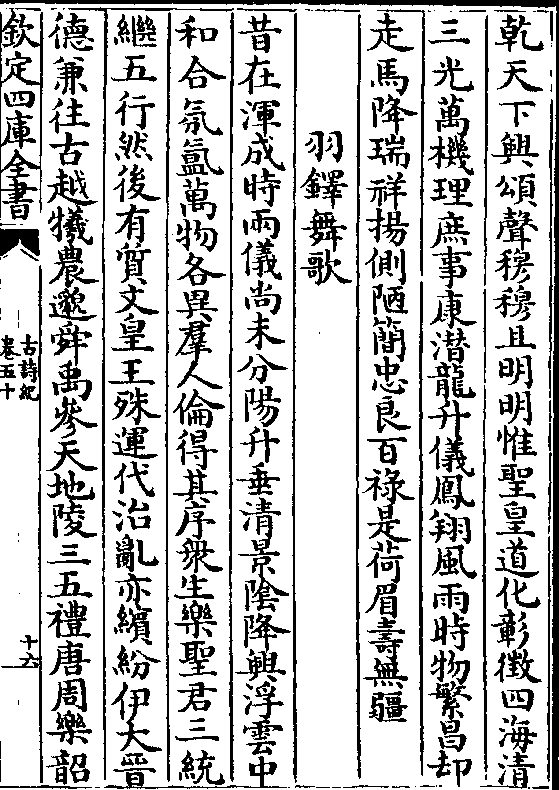 乾天下興頌聲穆穆且明明惟聖皇道化彰徴四海清
三光萬機理庶事康潛龍升儀鳳翔風雨時物繁昌却
走馬降瑞祥揚側陋簡忠良百祿是荷眉壽無疆
羽鐸舞歌
昔在渾成時兩儀尚未分陽升垂清景陰降興浮雲中
和合氛氲萬物各異羣人倫得其序衆生樂聖君三統
繼五行然後有質文皇王殊運代治亂亦繽紛伊大晉
德兼往古越犧農邈舜禹參天地陵三五禮唐周樂韶
欽定四庫全書
古詩紀
卷五十
十六